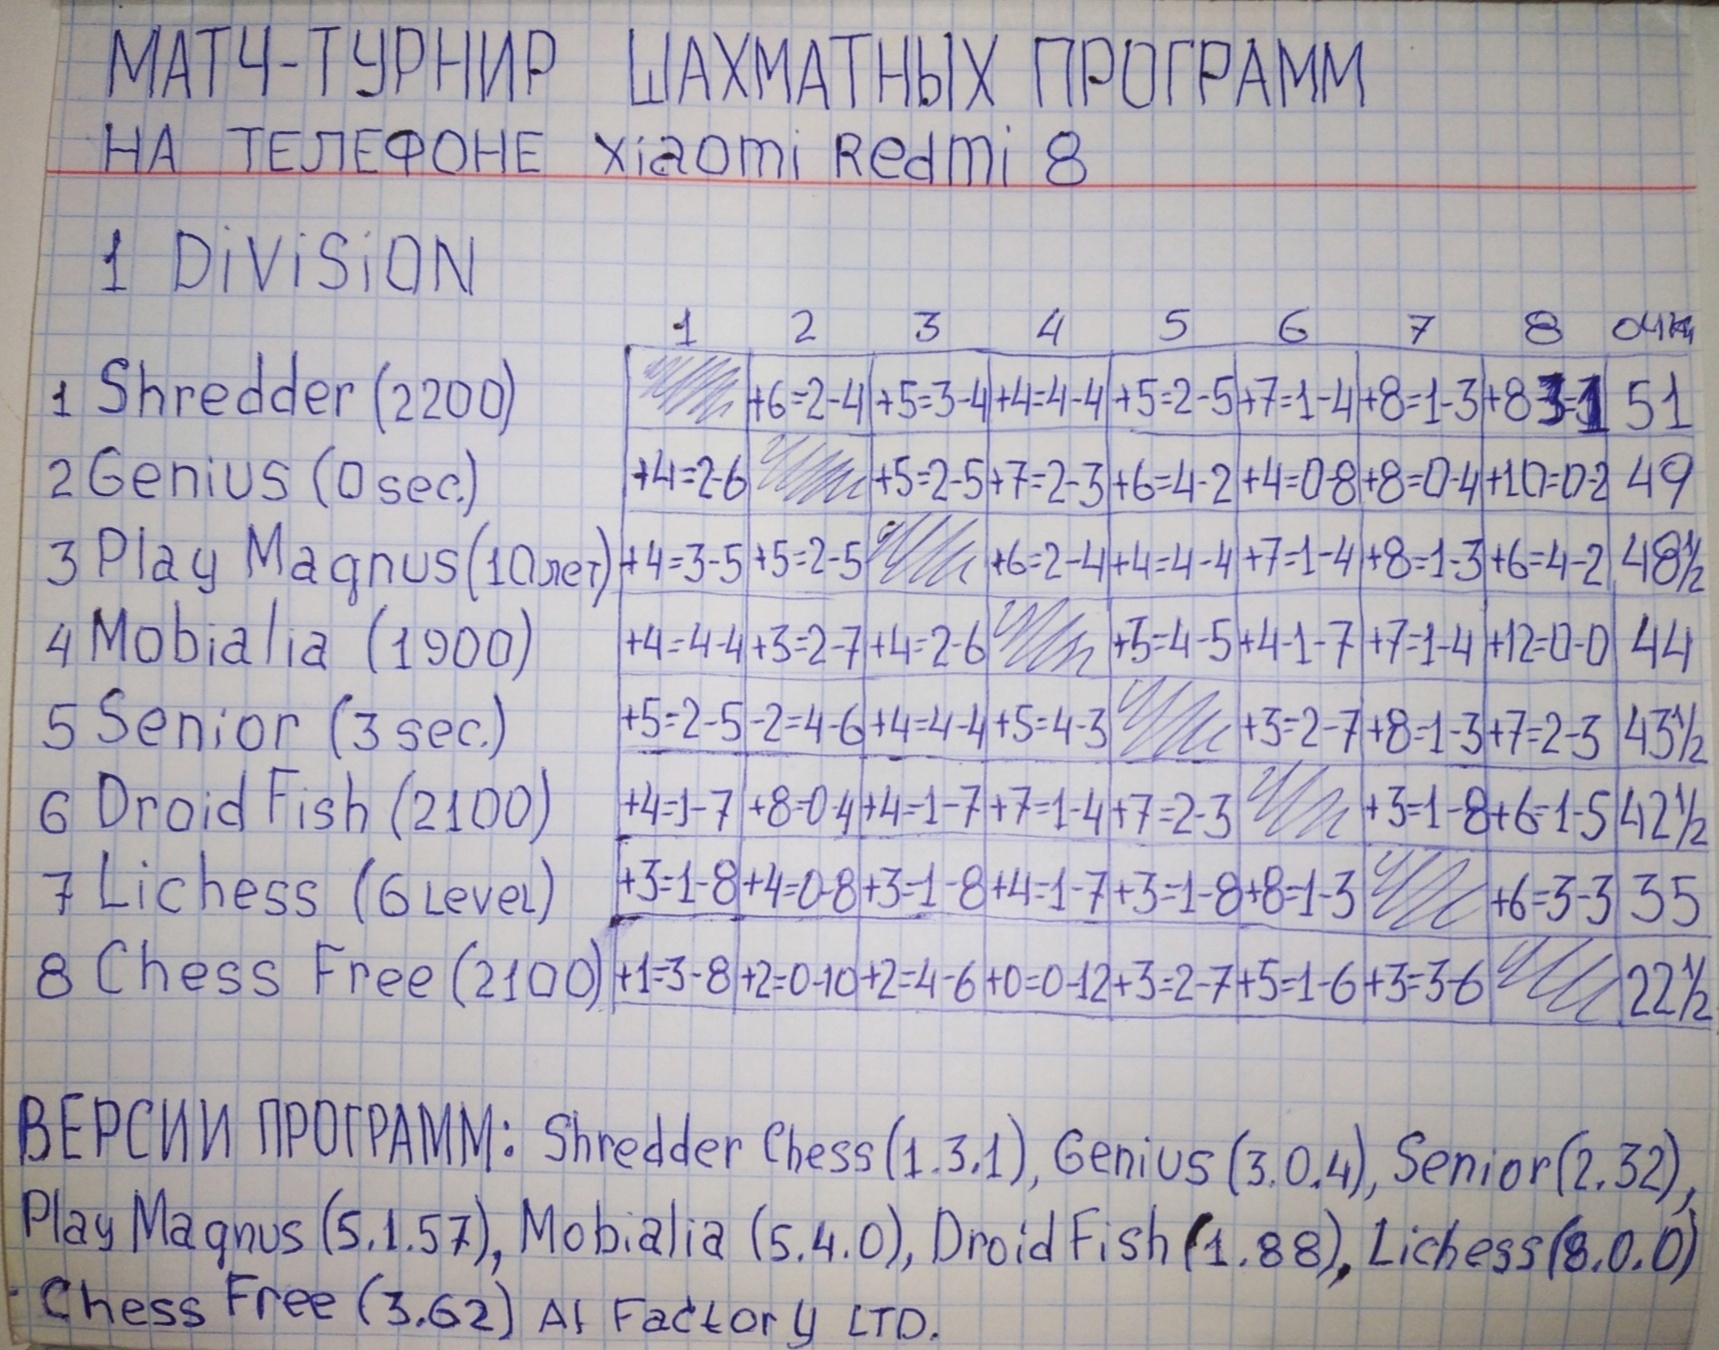 МАТЧ-ТУРНИР ШАХМАТНЫХ ПРОГРАММ
НА ТЕЛЕФОНЕ Xiaomi Redmi 8
1 DiViSiON
1 2 3 4 5 6 7 8 очки
1 Shredder (2200) +6=2-4 +5=3-4 +4=4-4 +5=2-5 +7=1-4 +8=1-3 +8 3-1 51
2 Genius (0 sec.) +4=2-6 +5=2-5 +7=2-3 +6=4-2 +4=0-8 +8=0-4 +10=0-2 49
3 Play Magnus (10 лет) +4=3-5 +5=2-5 +6=2-4 +4=4-4 +7=1-4 +8=1-3 +6=4-2 48½
4 Mobialia (1900) +4=4-4 +3=2-7 +4=2-6 +3=4-5 +4-1-7 +7=1-4 +12=0-0 44
5 Senior (3 sec.) +5=2-5 -2=4-6 +4=4-4 +5=4-3 +3=2-7 +8=1-3 +7=2-3 43½
6 Droid Fish (2100) +4=1-7 +8=0-4 +4=1-7 +7=1-4 +7=2-3 +3=1-8 +6=1-5 42½
7 Lichess (6 Level) +3=1-8 +4=0-8 +3=1-8 +4=1-7 +3=1-8 +8=1-3 +6=3-3 35
8 Chess Free (2100) +1=3-8 +2=0-10 +2=4-6 +0=0-12 +3=2-7 +5=1-6 +3=3-6 22½
ВЕРСИИ ПРОГРАММ: Shredder Chess (1.3.1), Genius (3.0.4), Senior (2.32),
Play Magnus (5.1.57), Mobialia (5.4.0), Droid Fish (1.88), Lichess (8.0.0)
Chess Free (3.62) AI Factory LTD.